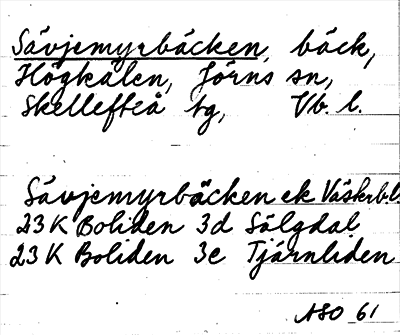 Sävjemyrbäcken, bäck,
Högkälen, Jörns sn,
Skellefteå tg, Vb. l.
Sävjemyrbäcken ek Västerb.l.
23K Boliden 3d Sälgdal
23K Boliden 3e Tjärnliden
ASO 61